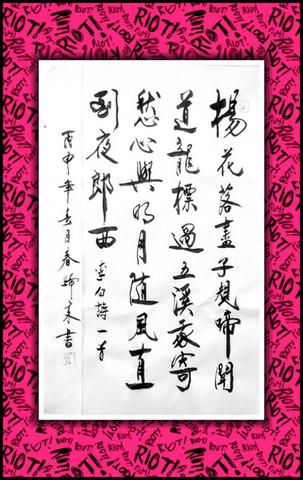 楊花落盡子規啼聞
道龍標過五溪我寄
愁心與明月隨風直
到夜郎西 李白詩一首
丙申年月春來書
RIOT!
RIOT!
RIOT!
RIOT!
RIOT!
RIOT!